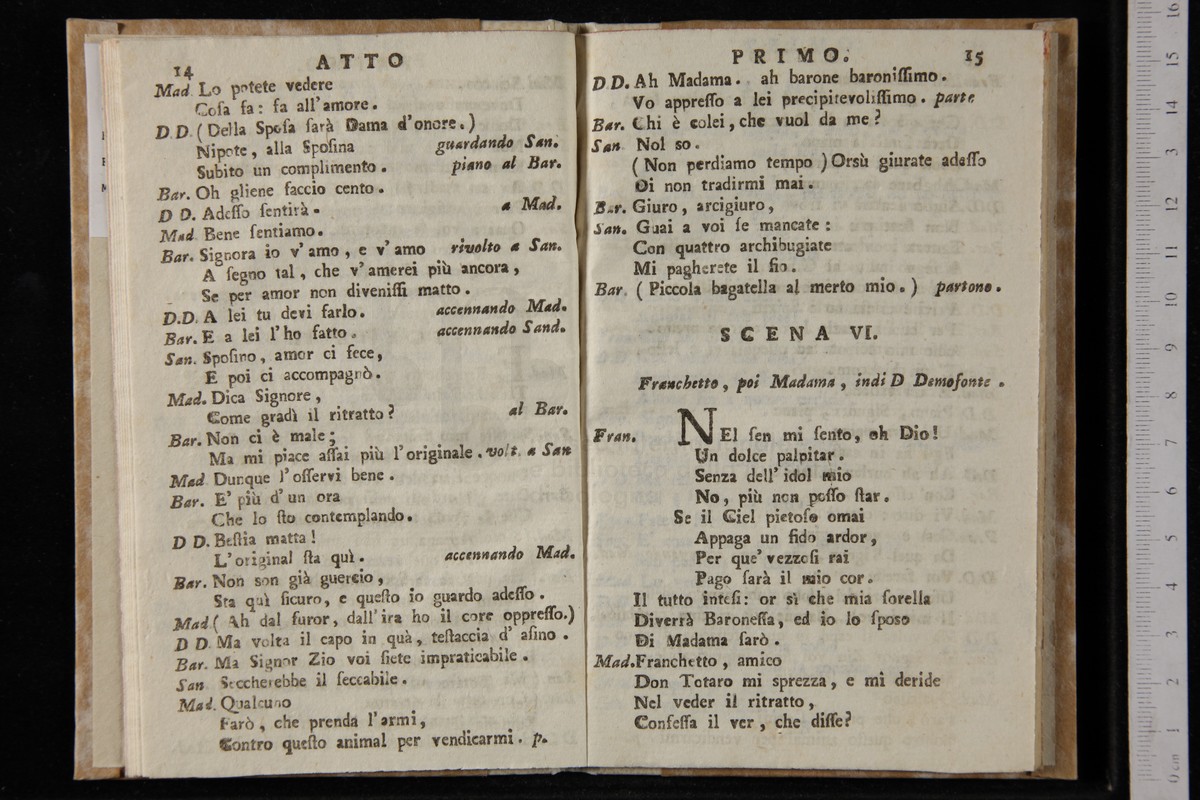 14 ATTO
Mad. Lo potete vedere
Coſa fa: fa all'amore.
D. D. (Della Spoſa ſarà Dama d'onore.)
Nipote, alla Spoſina guardando San.
Subito un complimento. piano al Bar.
Bar. Oh gliene faccio cento.
D D. Adeſſo ſentirà. a Mad.
Mad. Bene ſentiamo.
Bar. Signora io v'amo, e v'amo rivolto a San.
A ſegno tal, che v'amerei più ancora,
Se per amor non diveniſſi matto.
D.D. A lei tu devi farlo. accennando Mad.
Bar. E a lei l'ho fatto. accennando Sand.
San. Spoſino, amor ci fece,
E poi ci accompagnò.
Mad. Dica Signore,
Come gradì il ritratto? al Bar.
Bar. Non ci è male;
Ma mi piace aſſai più l'originale. volt. a San
Mad Dunque l'oſſervi bene.
Bar. E' più d'un ora
Che lo ſto contemplando.
D D. Beſtia matta!
L'original ſta quì. accennando Mad.
Bar. Non son già guercio,
Sta quì ſicuro, e queſto io guardo adeſſo.
Mad. (Ah dal furor, dall'ira ho il core oppreſſo.)
D D. Ma volta il capo in quà, teſtaccia d' aſino.
Bar. Ma Signor Zio voi ſiete impraticabile.
San Seccherebbe il ſeccabile.
Mad. Qualcuno
Farò, che prenda l'armi,
Contro queſto animal per vendicarmi. p.
PRIMO. 15
D D. Ah Madama. ah barone baroniſſimo.
Vo appreſſo a lei precipitevoliſſimo. parte
Bar. Chi è colei, che vuol da me?
San Nol so.
(Non perdiamo tempo) Orsù giurate adeſſo
Di non tradirmi mai.
Bar. Giuro, arcigiuro,
San. Guai a voi ſe mancate:
Con quattro archibugiate
Mi pagherete il fio.
Bar. (Piccola bagatella al merto mio.) partono.
SCENA VI.
Franchetto, poi Madama, indi D Demofonte.
Fran. NEl ſen mi ſento, oh Dio!
Un dolce palpitar.
Senza dell'idol mio
No, più non poſſo ſtar.
Se il Ciel pietoſo omai
Appaga un fido ardor,
Per que' vezzoſi rai
Pago ſarà il mio cor.
Il tutto inteſi: or sì che mia ſorella
Diverrà Baroneſſa, ed io lo ſposo
Di Madama ſarò.
Mad. Franchetto, amico
Don Totaro mi sprezza, e mi deride
Nel veder il ritratto,
Confeſſa il ver, che diſſe?